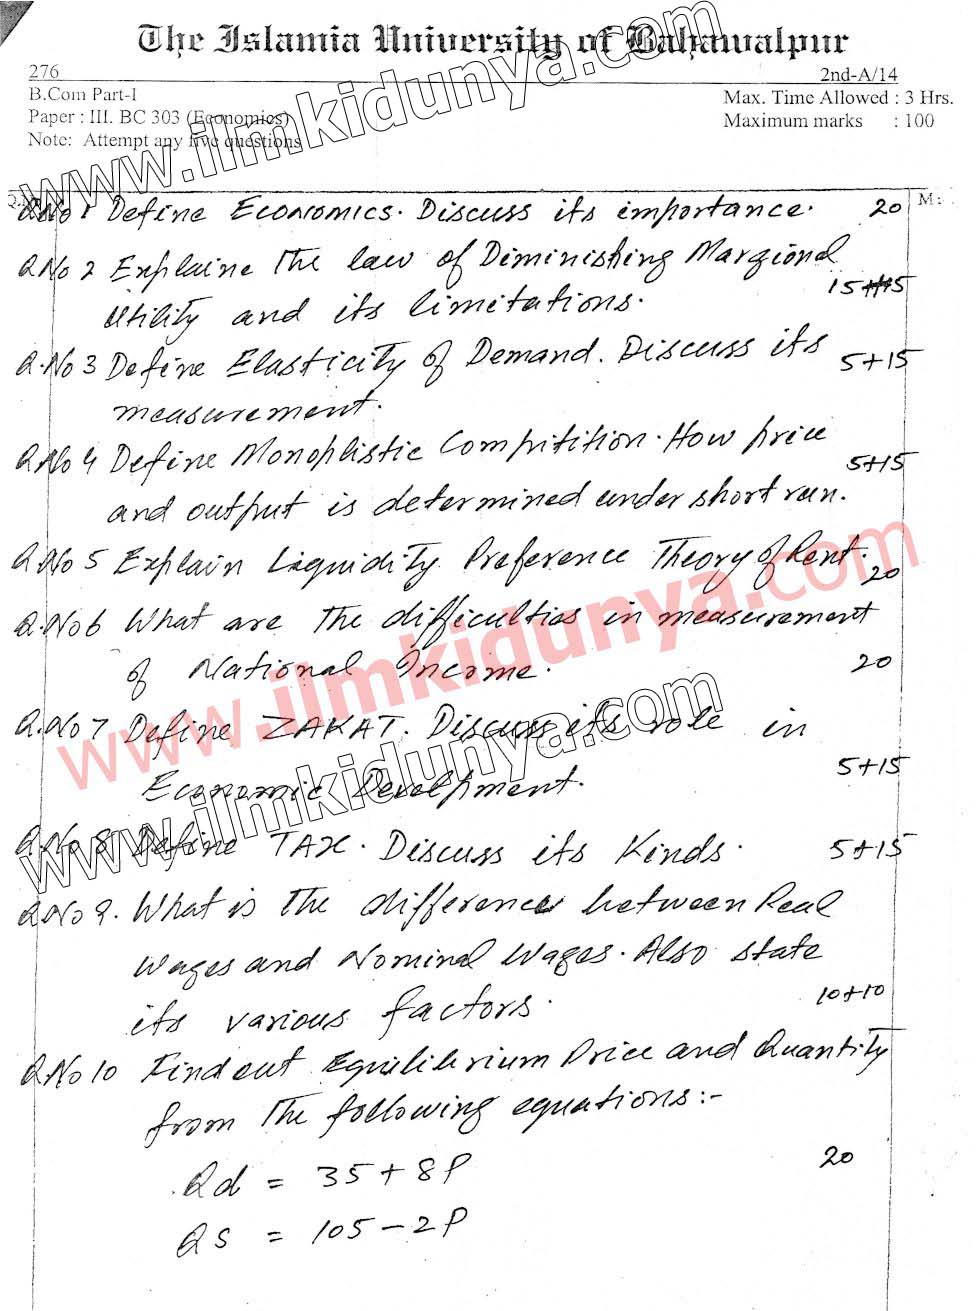 The Islamia University of Bahawalpur
276 2nd-A/14
B.Com Part-I Max. Time Allowed : 3 Hrs.
Paper : III. BC 303 (Economics) Maximum marks : 100
Note: Attempt any five questions
www.ilmkidunya.com
M:
Q.No 1 Define Economics. Discuss its importance. 20
Q.No 2 Explaine The law of Diminishing Margional
utility and its limitations. 15+15
Q.No 3 Define Elasticity of Demand. Discuss its 5+15
measurement.
Q.No 4 Define Monoplistic Compitition. How price
5+15
and output is determined under short run.
Q.No 5 Explain Liquidity Preference Theory of Rent.
20
Q.No 6 What are The difficulties in measurement
of National Income. 20
www.ilmkidunya.com
Q.No 7 Define ZAKAT. Discuss its role in
Economic Develpment. 5+15
www.ilmkidunya.com
Q.No 8 Define TAX. Discuss its Kinds. 5+15
Q.No 9. What is The difference between Real
Wages and Nominal Wages. Also state
its various factors. 10+10
Q.No 10 Find out Equilibrium Price and Quantity
from The following equations:-
Qd = 35+8P 20
QS = 105-2P